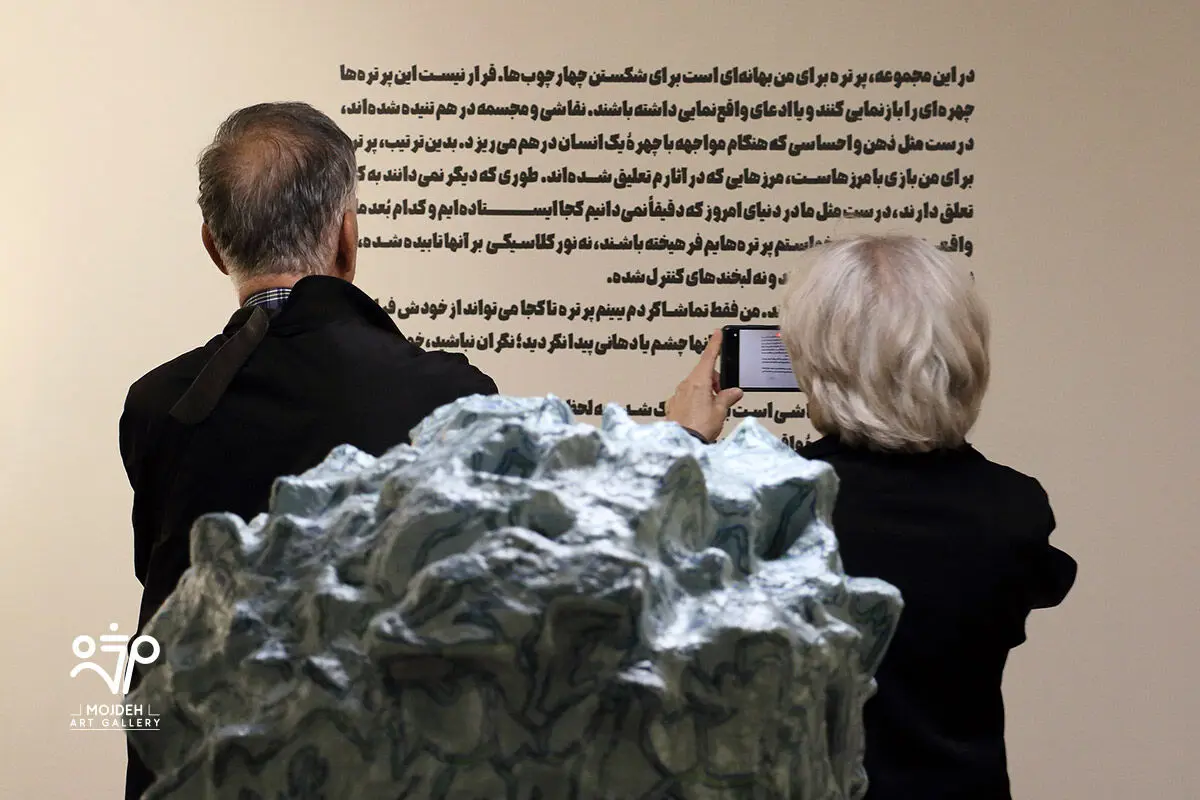 در این مجموعه، پرتره برای من بهانه‌ای است برای شکستن چهارچوب‌ها. قرار نیست این پرتره‌ها
چهره‌ای را بازنمایی کنند و یا ادعای واقع‌نمایی داشته باشند. نقاشی و مجسمه در هم تنیده شده‌اند،
درست مثل ذهن و احساسی که هنگام مواجهه با چهرهٔ یک انسان در هم می‌ریزد. بدین ترتیب،
برای من بازی با مرزهاست، مرزهایی که در آثارم تعلیق شده‌اند. طوری که دیگر نمی‌دانند به
تعلق دارند، درست مثل ما در دنیای امروز که دقیقأ نمی‌دانیم کجا ایستاده‌ایم و کدام بُعد
پرتره‌هایم فرهیخته باشند، نه نور کلاسیکی بر آنها تابیده شده،
و نه لبخندهای کنترل شده.
من فقط تماشاگر دم ببینم پرتره تا کجا می‌تواند از خودش
چشم یا دهانی پیدا نکردید؛ نگران نباشید،
است
MOJDEH
ART GALLERY